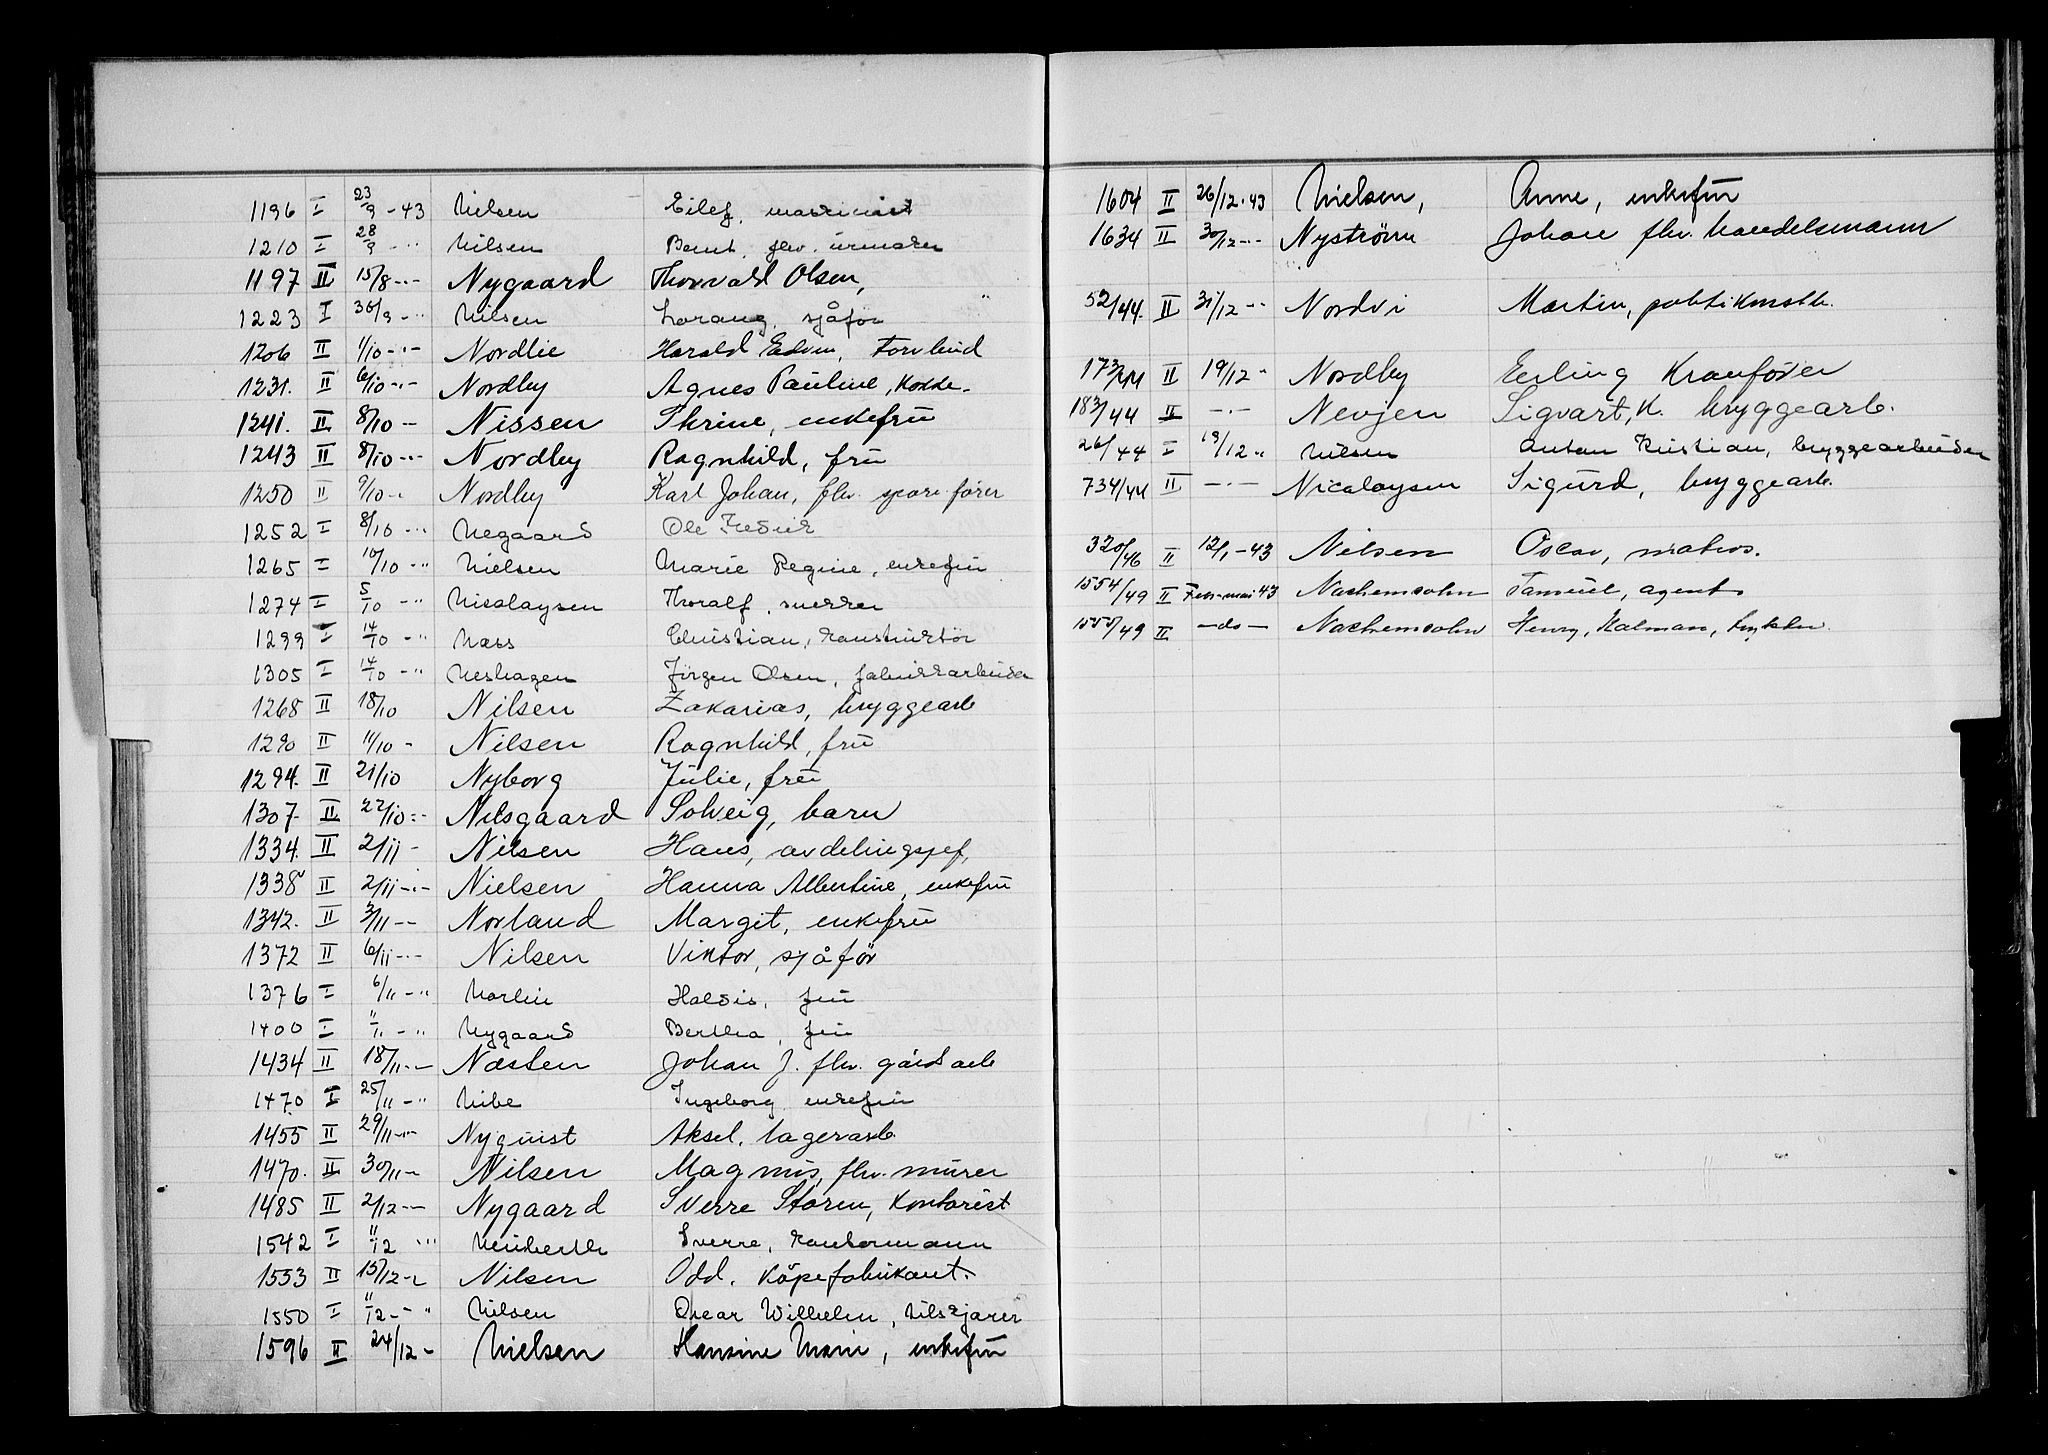 1196 I 23/9 - 43 Nielsen Eilef, maskinist
1210 I 28/9 - " Nilsen Bernt, fhv. urmaker
1197 II 15/8 - " - Nygaard Thorvald Olsen,
1223 I 30/9 - " Nilsen Lorang, sjåför
1206 II 1/10 - " - Nordlie Harald Edvin,
1231. II 6/10 - " - Nordby Agnes Pauline, kokke-
1241. II 8/10 - Nissen Thrine, enkefru
1243 II 8/10 - " - Nordby Ragnhild, fru
1250 II 9/10 - " Nordby Karl Johan, fhv.
1252 I 8/10 - " Negaard Ole Fredrik
1265 I 10/10 - " Nielsen Marie Regine, enkefru
1274 I 5/10 - " Nicolaysen Thoralf, snekker
1299 I 14/10 - " Næss Christian, konstruktör
1305 I 14/10 - " Neshagen Jörgen Olsen, fabrikkarbeider
1268 II 18/10 Nilsen Zakarias, bryggearb
1290 II 11/10 - Nilsen Ragnhild, fru
1294. II 21/10 Nyborg Julie, fru
1307 II 22/10 - " - Nilsgaard Solveig, barn
1334. II 2/11 - Nilsen Hans, avdelingssjef,
1338 II 2/11 - " - Nielsen Hanna Albertine, enkefru
1342. II 3/11 - " - Norland Margit, enkefru
1372 II 6/11 - " - Nilsen Viktor, sjåför
1376 I 6/11 - " Norlin Haldis, fru
1400 I 11/11 - " Nygaard Bertha, fru
1434 II 18/11 - " - Næsten Johan J. fhv. gårdsarb
1470 I 25/11 - " Nibe Ingeborg enkefru
1455 II 29/11 - " - Nyquist Aksel, lagerarb.
1470. II 30/11 - Nilsen Magnus, fhv. murer
1485 II 2/12 - " - Nygaard Sverre Storen, Kontorist
1542 I 11/12 " Neuberth Sverre, kontormann
1553 II 15/12 - " Nilsen Odd. Kåpefabrikant.
1550 I 11/12 - " Nilsen Oscar Wilhelm,
1596 II 24/12 - Nielsen Hansine Marie, enkefru
1604 II 26/12 - 43 Nielsen, Anne, enkefru
1634 II 30/12 - " - Nyström Johan fhv. handelsmann
52/44. II 31/12 - " Nordvi Martin, politikonstb.
173/44 II 19/12 - Nordby Erling Kranförer
183/44 II - " - Nevjen Sigvart, K. bryggearb.
26/44 I 19/12 " Nilsen Anton Kristian, bryggearbeider
734/44 II - " - Nicolaysen Sigurd, bryggearb.
320/46 II 12/1 - 43 Nilsen Oscar, matros.
1554/49 II Febr-mai 43 Nachemsohn Samuel, agent
1555/49 II - do - Nachemsohn Henry, Kalman,